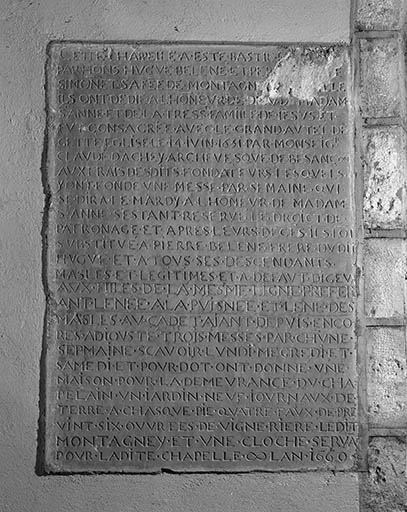 CETTE CHAPELLE A ESTE BASTI
PAR MONS HVGVE BELENE ET PER
SIMONE SAFEE DE MONTAGN
ILS ONT DEDIE A L HONEVR DE DIEV DE MADAM
S ANNE ET DE LA TRES S FAMILLE DE IESVS ET
FVT CONSACREE AVEC LE GRAND AVTEL DE
CETTE EGLISE LE 14 IVIN 1651 PAR MONSEIG
CLAVDE D ACHEY ARCHEVESQVE DE BESANC
AVX FRAIS DESDITS FONDATEVRS LESQVELS
Y ONT FONDE VNE MESSE PAR SEMAINE QVI
SE DIRA LE MARDY A L HONEVR DE MADAM
S ANNE S ESTANT RESERVE LE DROICT DE
PATRONAGE ET APRES LEVRS DECES ILS ONT
SVBSTITVE A PIERRE BELENE FRERE DVDIT
HVGVE ET A TOVS SES DESCENDANTS
MASLES ET LEGITIMES ET A DEFAVT DICEV
AVX FILLES DE LA MESME LIGNE PREFER
ANT LENEE A LA PVISNEE ET LENE DES
MASLES AV CADET AIANT DEPVIS ENCO
RES ADIOVSTE TROIS MESSES PAR CHVNE
SEPMAINE SCAVOIR LVNDI MECREDI ET
SAMEDI ET POVR DOT ONT DONNE VNE
MAISON POVR LA DEMEVRANCE DV CHA
PELAIN VN IARDIN NEVF IOVRNAVX DE
TERRE A CHASQVE PIE QVATRE FAVX DE PR
VINT SIX OVVREES DE VIGNE RIERE LEDIT
MONTAGNEY ET VNE CLOCHE SERVA
POVR LADITE CHAPELLE ∞ LAN 1660